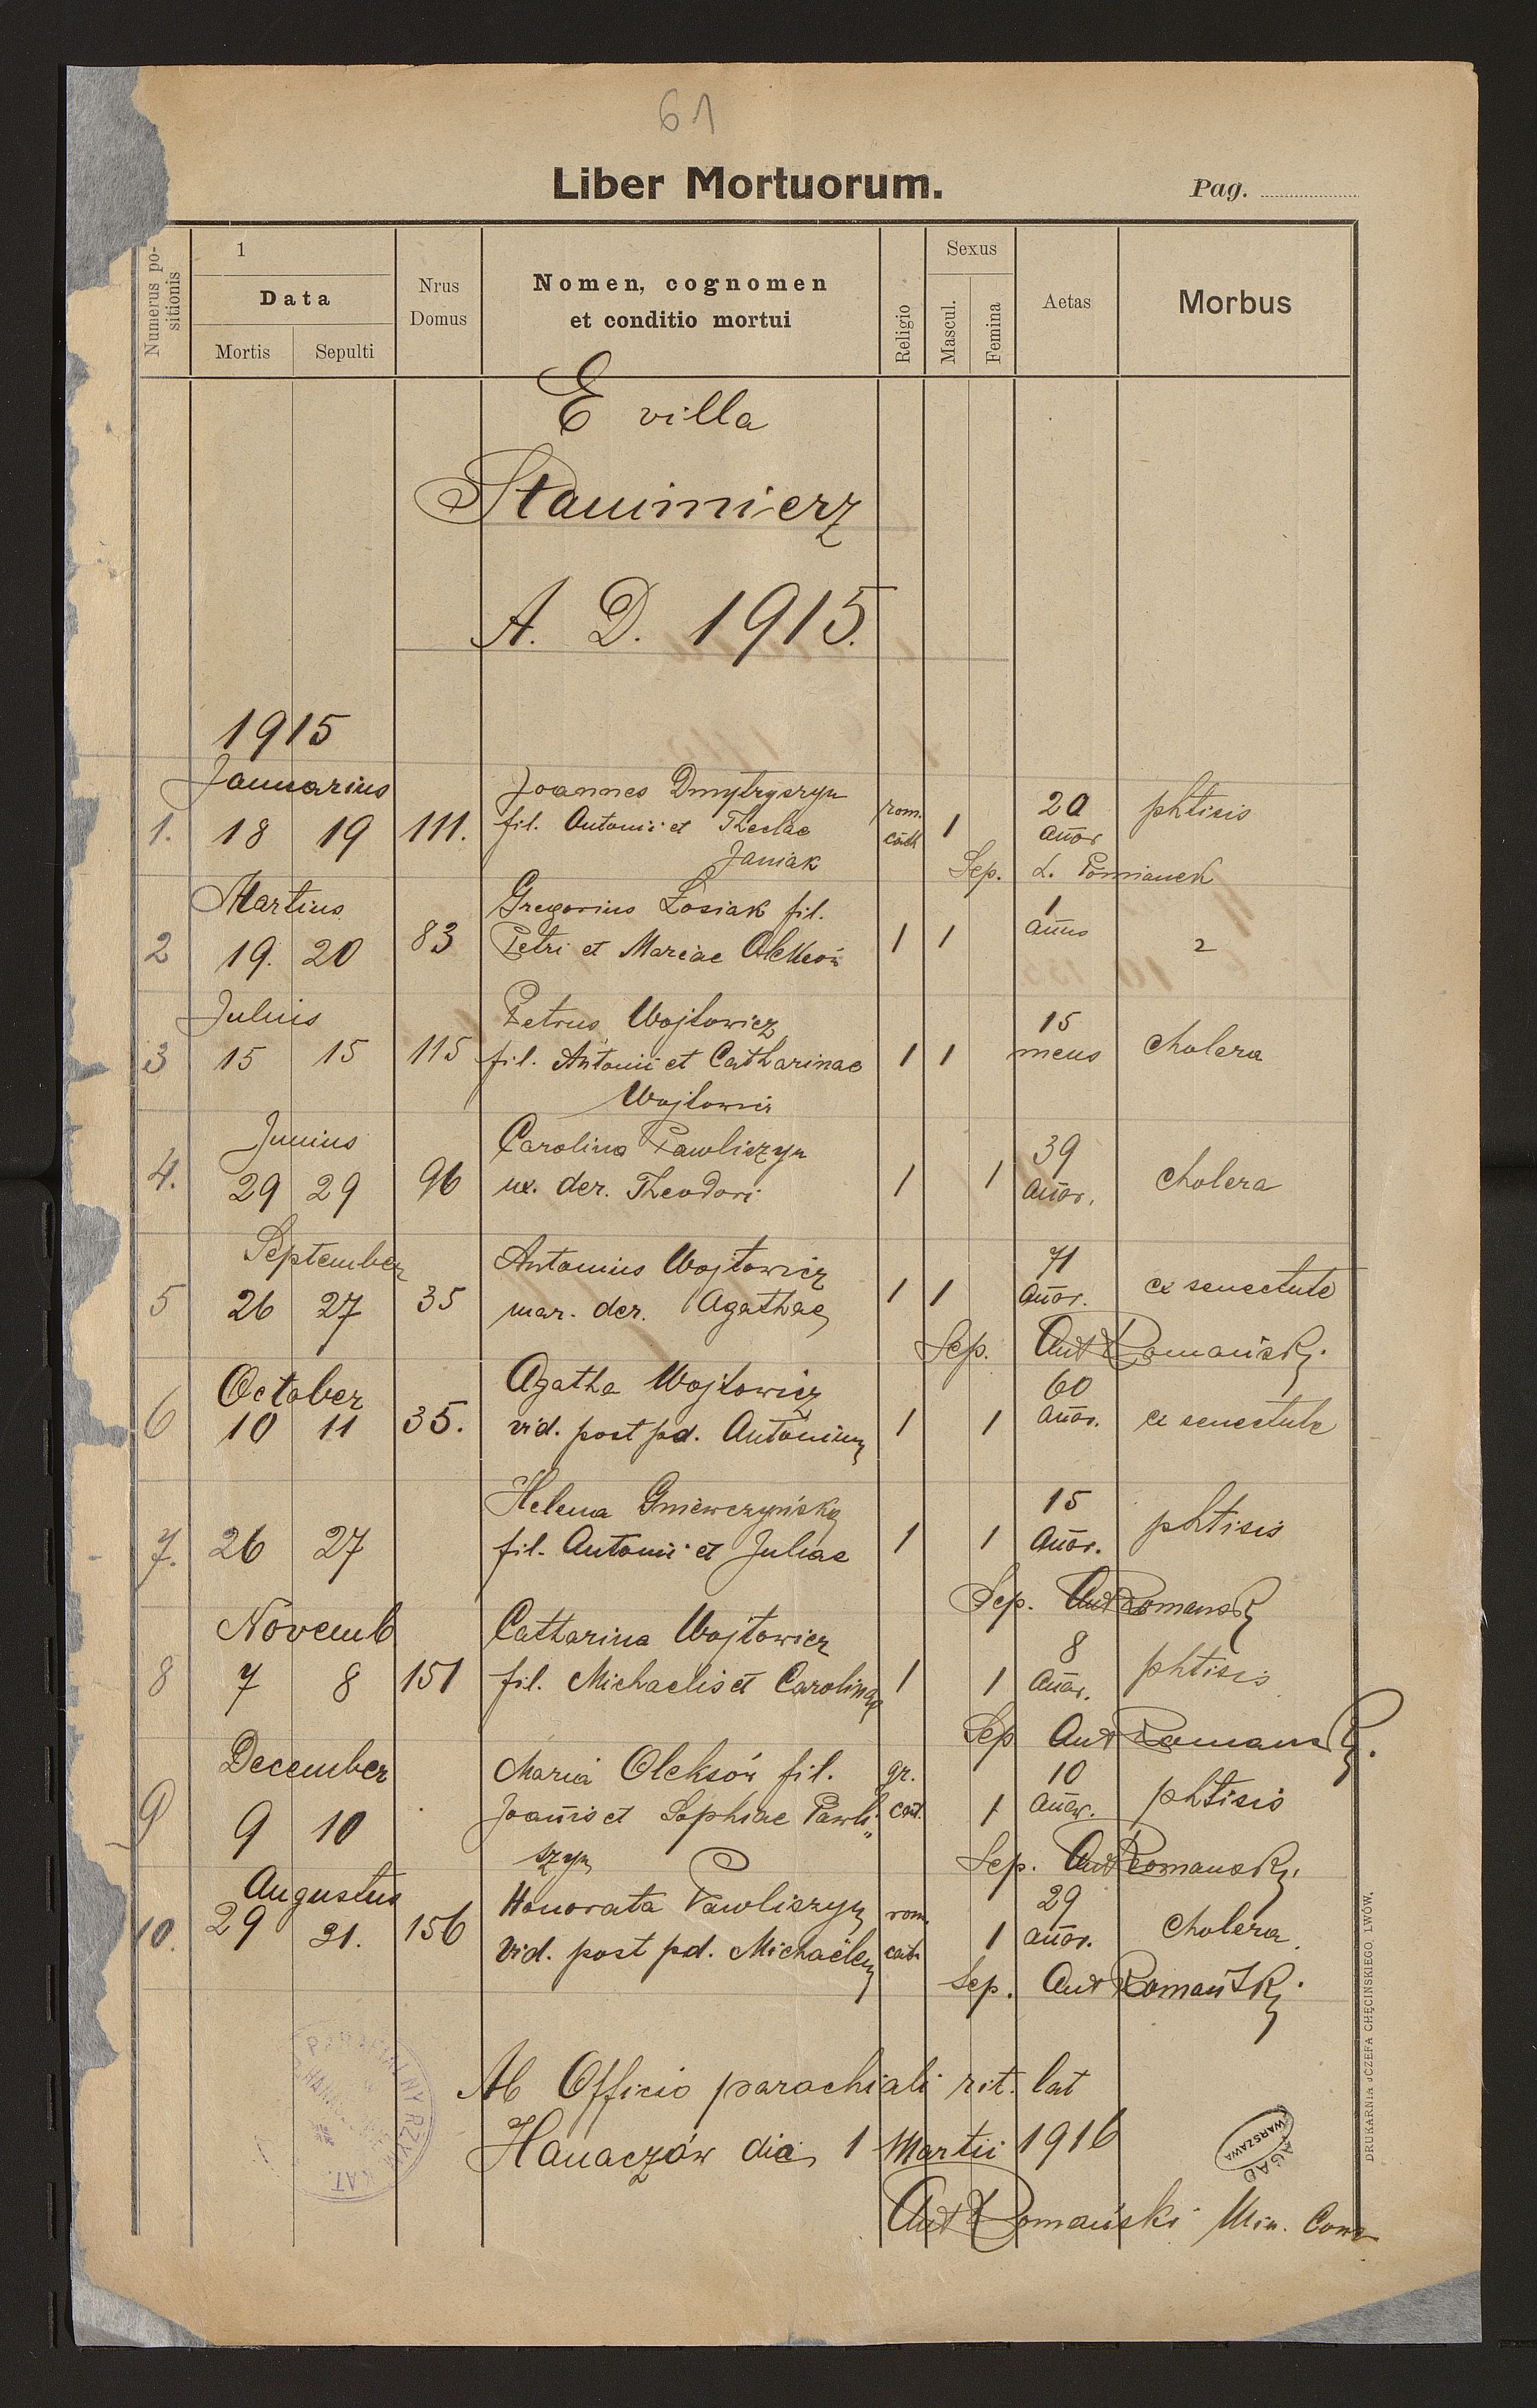 61
Liber Mortuorum.
Pag.
Numerus positionis
1
Data
Mortis
Sepulti
Nrus Domus
Nomen, cognomen
et conditio mortui
Religio
Sexus
Mascul.
Femina
Aetas
Morbus
E villa
Stanimierz
A. D. 1915.
1915
Januarius Joannes Dmytryszyn
1. 18 19 111. fil. Antonii et Theclae rom. cath 1 20 anor phtisis
Janiak Sep. L.
Martius Gregorius Łosiak fil.
2 19. 20 83 Petri et Mariae 1 1 1 annus 2
Julius Petrus Wojtowicz
3 15 15 115 fil. Antonii et Catharinae 1 1 15 mens cholera
Wojtowicz
Junius Carolina Pawliszyn
4. 29 29 96 ux. der. Theodori 1 1 39 anor. cholera
September Antonius Wojtowicz
5 26 27 35 mar. der. Agathae 1 1 71 anor. ex senectute
Sep. Ant Romański.
October Agatha Wojtowicz
6 10 11 35. vid. post pd. Antonium 1 1 60 anor. ex senectute
Helena Gniewczyńska
7. 26 27 fil. Antonii et Juliae 1 1 15 anor. phtisis
Sep. Ant Romański
Novemb Catharina Wojtowicz
8 7 8 151 fil. Michaelis et Carolinae 1 1 8 anor. phtisis
Sep Ant Romański.
December Maria Oleksów fil. gr.
9 9 10 Joanis et Sophiae Pawli„ cat. 1 10 anor. phtisis
szyn Sep. Ant Romański
Augustus Honorata Pawliszyn rom.
10. 29 31. 156 vid. post pd. Michaelem cath 1 29 anor. Cholera.
Sep. Ant Romański
Ab Officio parochiali rit. lat
Hanaczów die 1 Martii 1916
Ant Romański Min. Conv
AGAD
WARSZAWA
DRUKARNIA JÓZEFA CHĘCIŃSKIEGO, LWÓW.